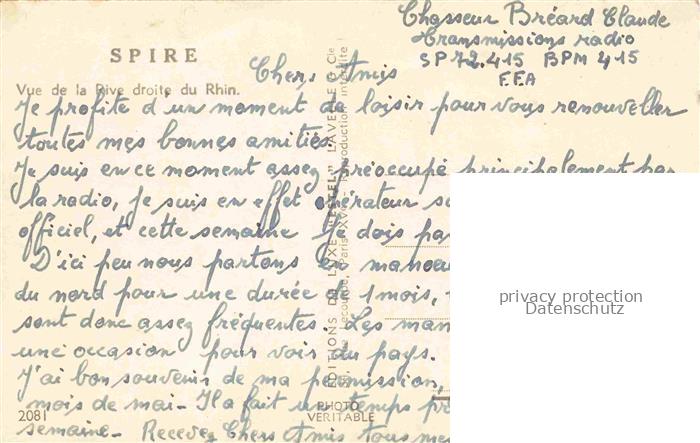 Chasseur Bréard Claude
Transmissions radio
SP 72.415 BPM 415
F.F.A
SPIRE
Vue de la Rive droite du Rhin.
Chers Amis
Je profite d'un moment de loisir pour vous renouveller
toutes mes bonnes amitiés.
Je suis en ce moment assez préoccupé principalement par
la radio, je suis en effet opérateur
officiel, et cette semaine je dois
D'ici peu nous partons en
du nord pour une durée de 1 mois,
sont donc assez fréquentes. Les
une occasion pour voir du pays.
J'ai bon souvenir de ma permission,
mois de mai - Il a fait un temps
semaine - Recevez Chers Amis tous
2081
PHOTO
VERITABLE
EDITIONS DE LUXE "ESTEL" LAVELLE & Cie
Paris XV - Reproduction interdite
privacy protection
Datenschutz